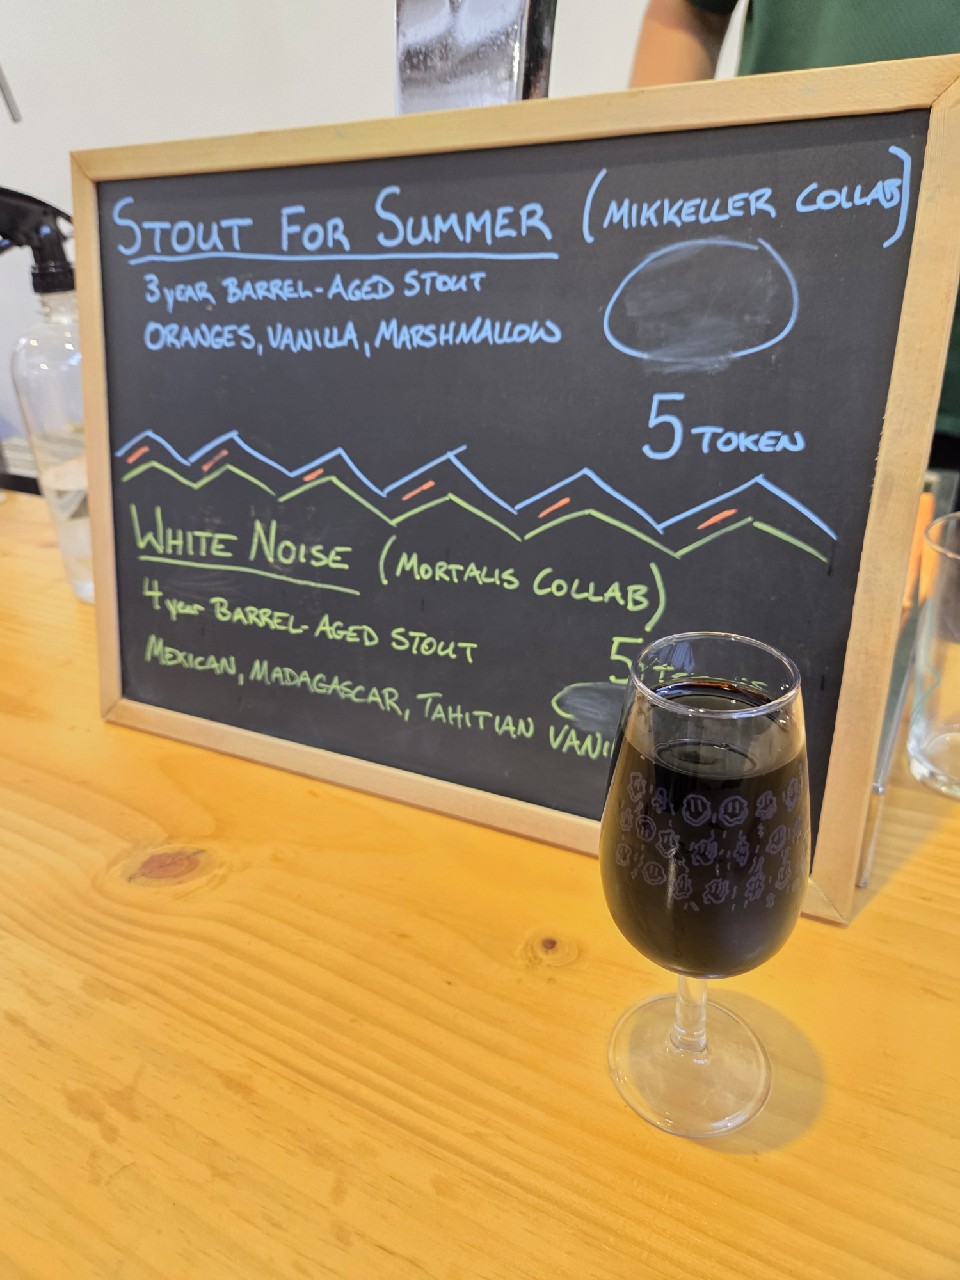 STOUT FOR SUMMER (MIKKELLER COLLAB)
3 YEAR BARREL-AGED STOUT
ORANGES, VANILLA, MARSHMALLOW
5 TOKEN
WHITE NOISE (MORTALIS COLLAB)
4 year BARREL-AGED STOUT
5
MEXICAN, MADAGASCAR, TAHITIAN VANI